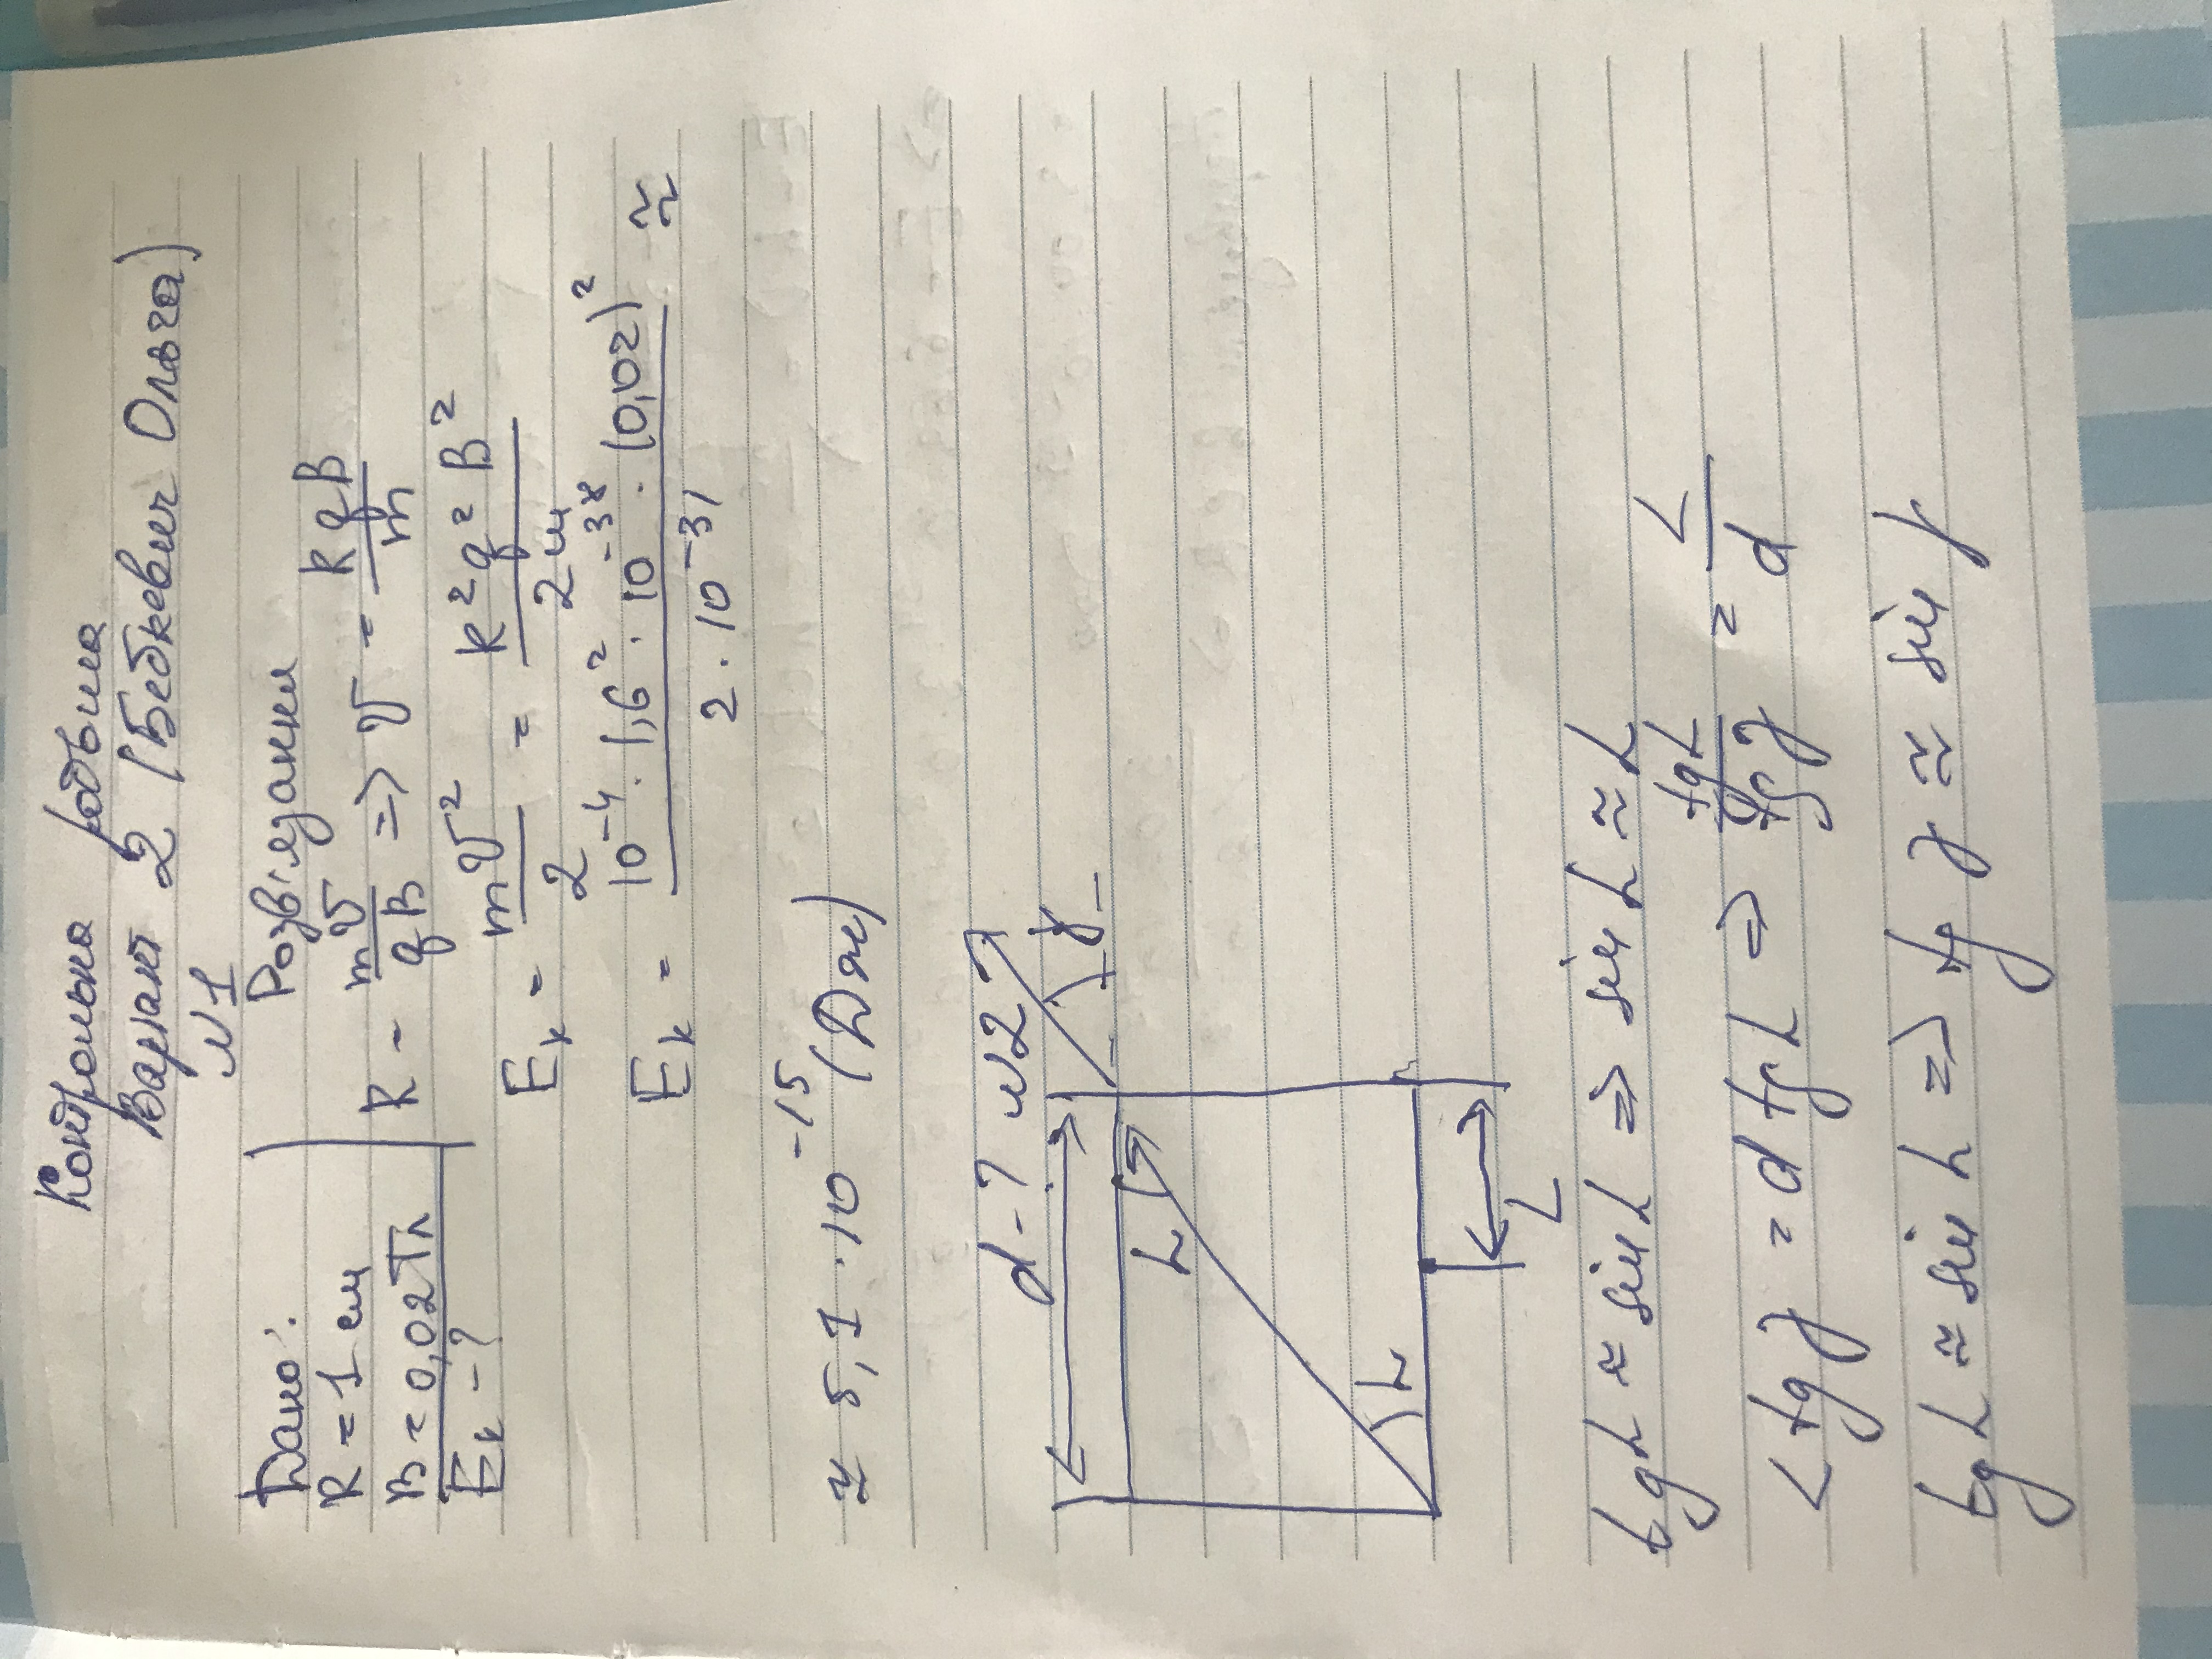 Контрольна робота
Варіант 2 (Бебкевич Ольга)
№1
Дано:
R = 1 см
B = 0,02 Тл
Eк - ?
Розв'язання
R = mv/qB => v = RqB/m
Eк = mv²/2 = R²q²B²/2m
Eк = 10⁻⁴ · 1,6² · 10⁻³⁸ · (0,02)² / 2 · 10⁻³¹ ≈
≈ 5,1 · 10⁻¹⁵ (Дж)
d - ? №2
γ
α
α
L
tg α ≈ sin α => sin α ≈ α
L tg γ = d tg α => tg α / tg γ = L/d
tg α ≈ sin α => tg γ ≈ sin γ